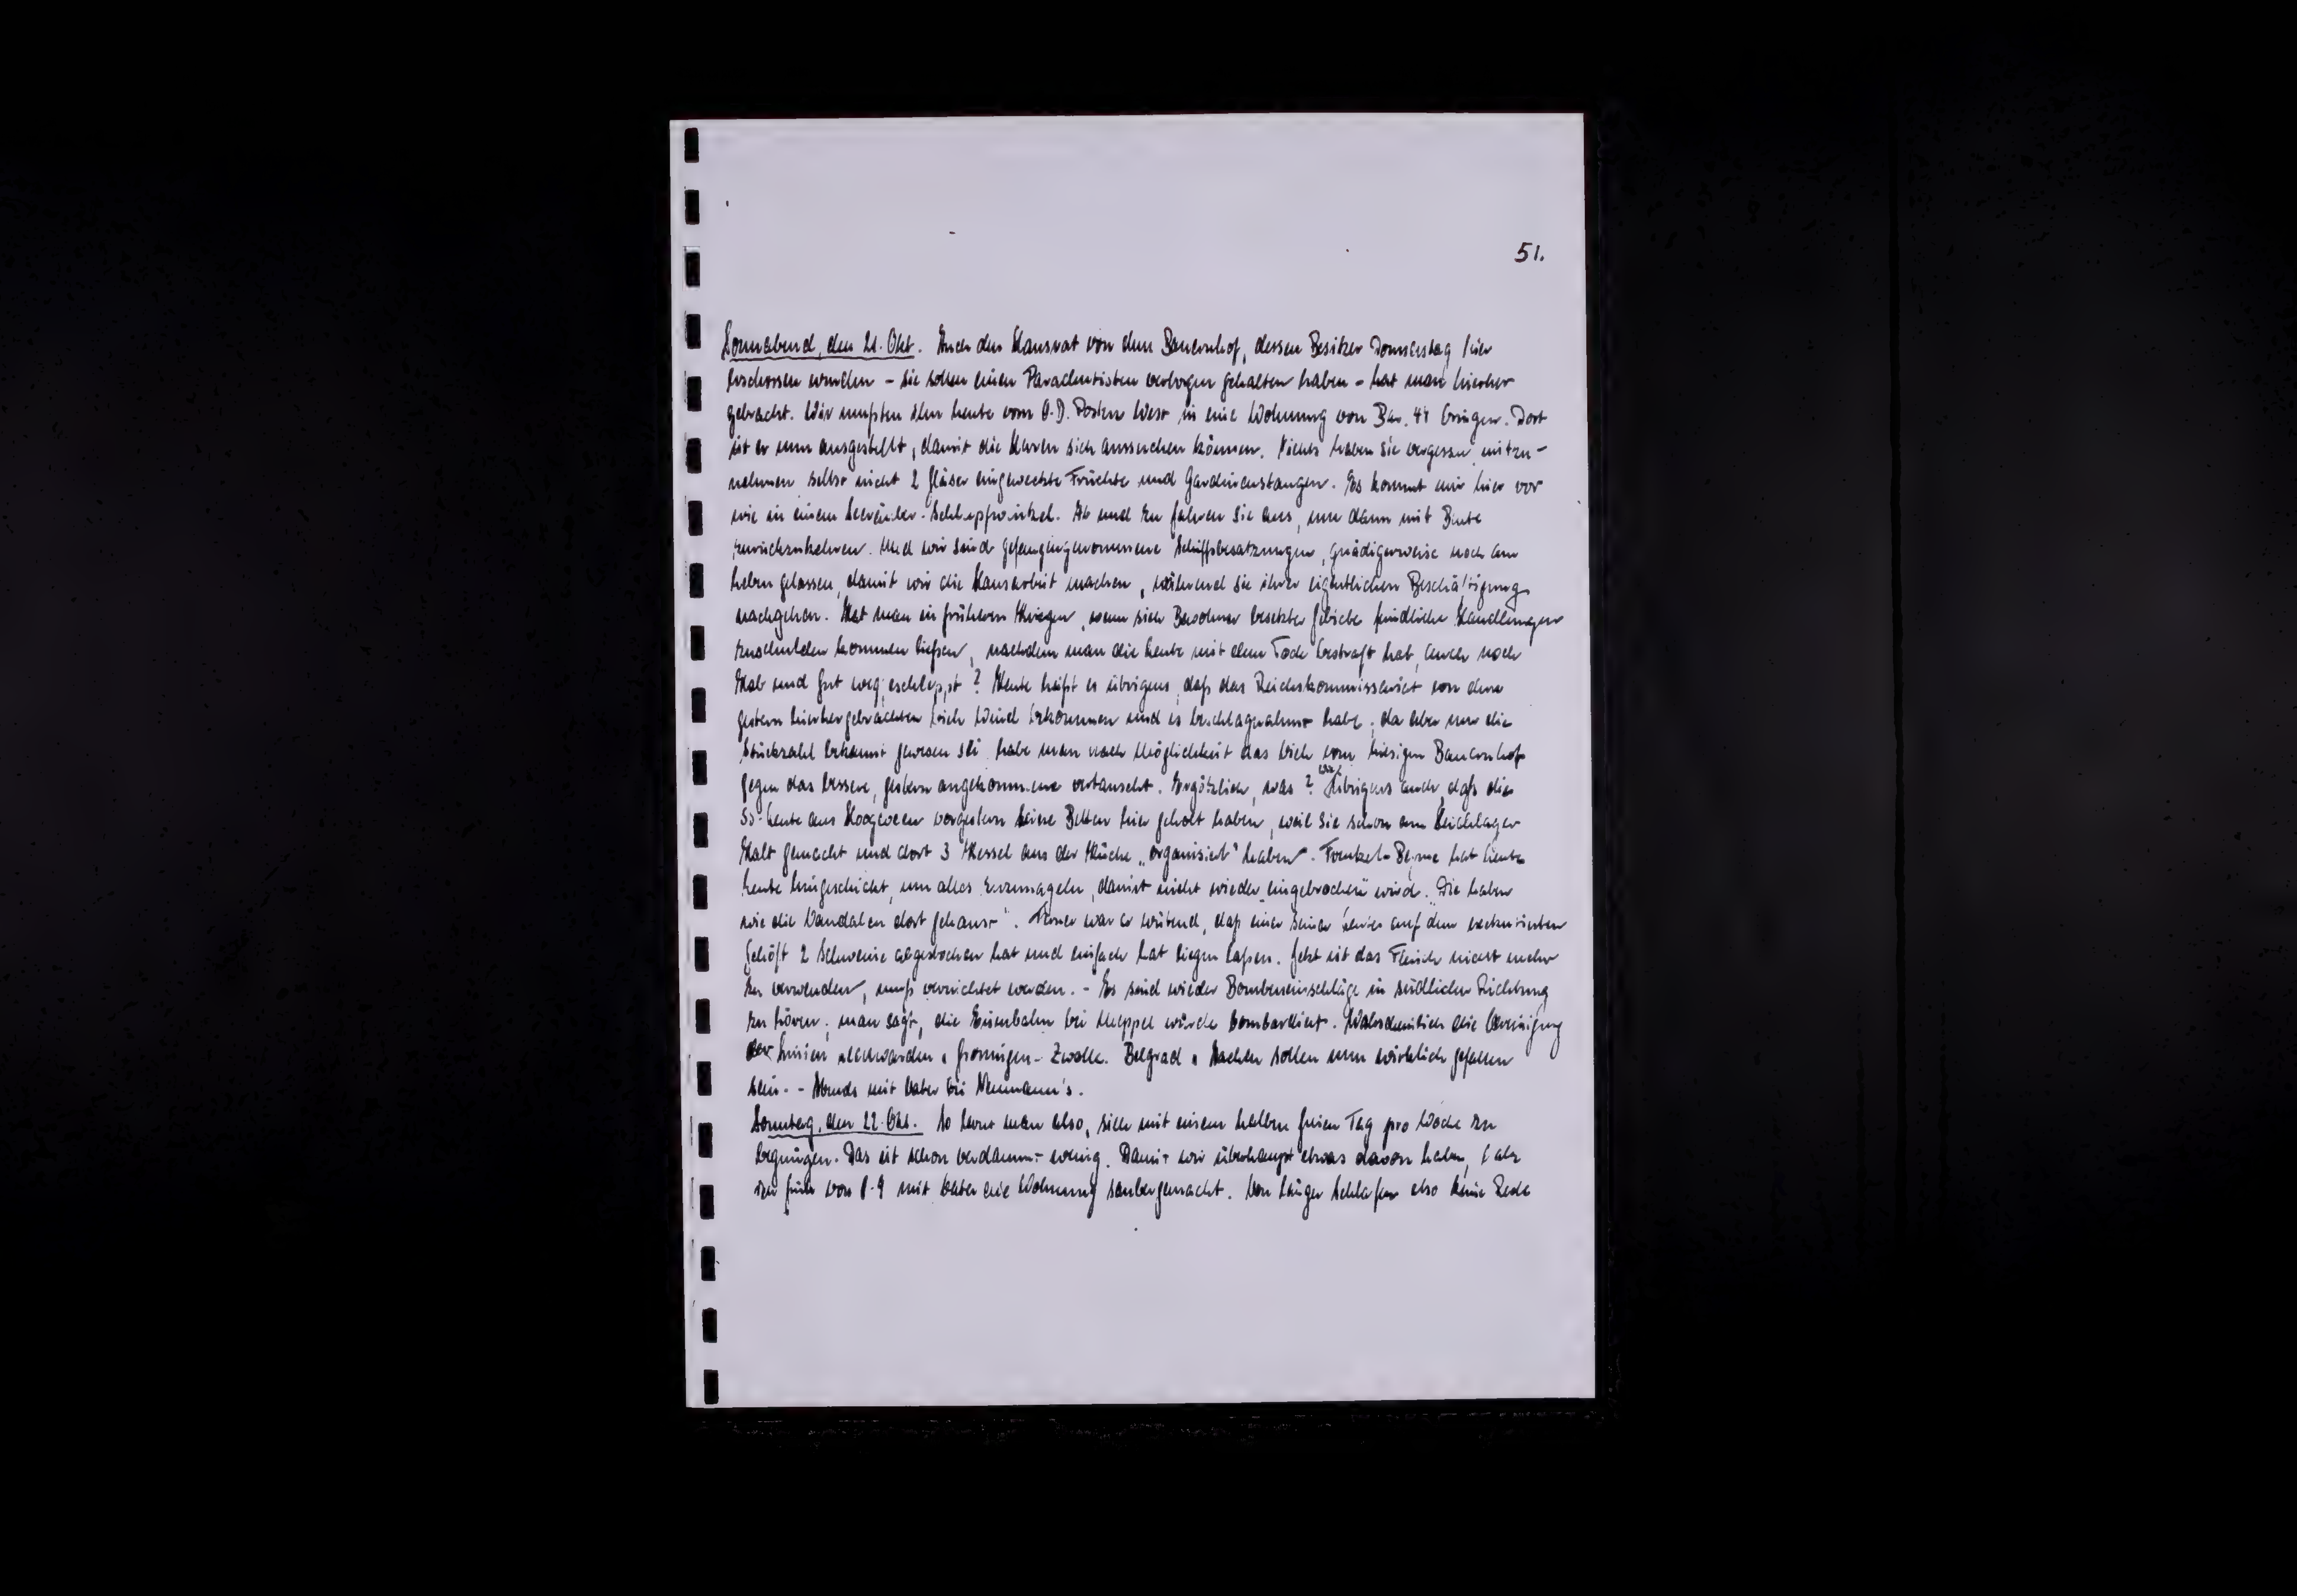 51.
Sonnabend, den 21. Okt. Auch den Hausrat von dem Bauernhof, dessen Besitzer Donnerstag hier
erschossen wurden - sie sollen einen Parachutisten verborgen gehalten haben - hat man hierher
gebracht. Wir mußten ihn heute vom O.D. Posten West in eine Wohnung von Bar. 44 bringen. Dort
ist er nun ausgestellt, damit die Herren sich aussuchen können. Nichts haben sie vergessen mitzu-
nehmen selbst nicht 2 Gläser eingeweckte Früchte und Gardinenstangen. Es kommt mir hier vor
wie in einem Seeräuber-Schlupfwinkel. Ab und zu fahren sie aus, um dann mit Beute
zurückzukehren. Und wir sind gefangengenommene Schiffsbesatzungen, gnädigerweise noch am
Leben gelassen, damit wir die Hausarbeit machen, während sie ihrer eigentlichen Beschäftigung
nachgehen. Hat man in früheren Kriegen, wenn sich Bewohner besetzter Gebiete feindliche Handlungen
zuschulden kommen ließen, nachdem man die Leute mit dem Tode bestraft hat, auch noch
Hab und Gut weggeschleppt? Heute heißt es übrigens, daß das Reichskommissariat von dem
gestern hierhergebrachten Vieh Wind bekommen und es beschlagnahmt habe; da aber nur die
Stückzahl bekannt gewesen sei habe man nach Möglichkeit das Vieh vom hiesigen Bauernhof
gegen das bessere, gestern angekommene vertauscht. Ergötzlich, was? Übrigens auch, daß die
SS-Leute aus Hoogeveen vorgestern keine Betten hier geholt haben, weil sie schon am
Halt gemacht und dort 3 Kessel aus der Küche „organisiert" haben. hat heute
Leute hingeschickt, um alles zuzunageln, damit nicht wieder „eingebrochen" wird. „Die haben
wie die Vandalen dort gehaust". Ferner war er wütend, daß einer seiner Leute auf dem
Gehöft 2 Schweine abgestochen hat und einfach hat liegen laßen. Jetzt ist das Fleisch nicht mehr
zu verwenden, muß vernichtet werden. - Es sind wieder Bombeneinschläge in südlicher Richtung
zu hören; man sagt, die Eisenbahn bei Meppel würde bombardiert. Wahrscheinlich die Vereinigung
der Linien Leeuwarden u Groningen - Zwolle. Belgrad u Aachen sollen nun wirklich gefallen
sein. - Abends mit Vater bei Neumann's.
Sonntag, den 22. Okt. So lernt man also, sich mit einem halben freien Tag pro Woche zu
begnügen. Das ist schon verdammt wenig. Damit wir überhaupt etwas davon haben, habe
ich früh von 8-9 mit Vater die Wohnung saubergemacht. Von länger Schlafen also keine Rede